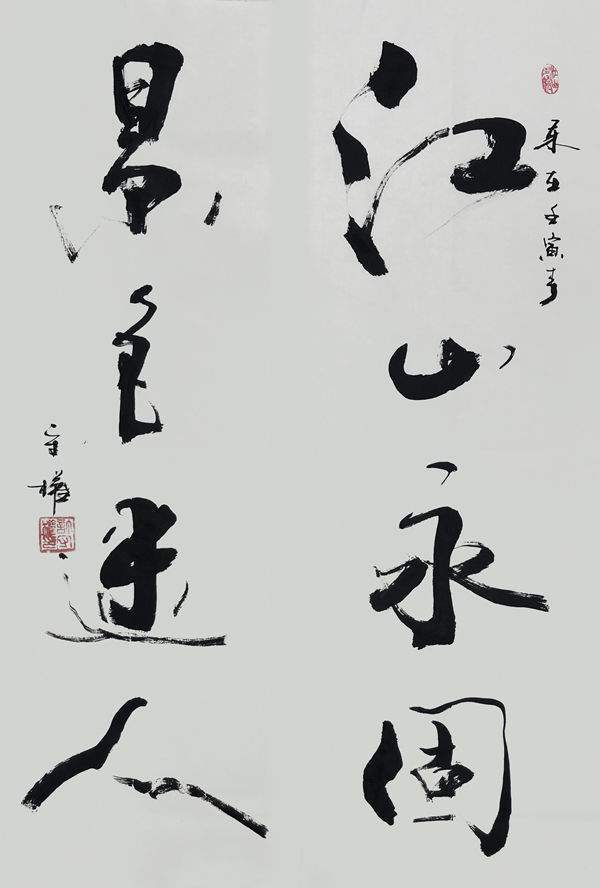 岁在壬寅
江山永固
景色迷人
守